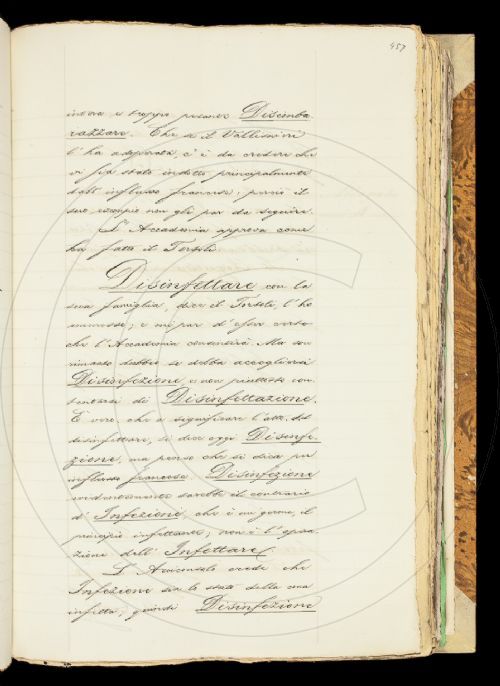 457
intero è troppo pesante Disimba-
razzare. Che se il Vallisnieri
l'ha adoperata, c'è da credere che
vi sia stato indotto principalmente
dall'influsso francese; perciò il
suo esempio non gli par da seguire.
L'Accademia approva come
ha fatto il Tortoli.
Disinfettare con la
sua famiglia, dice il Tortoli, l'ho
ammesso; e mi par d'esser certo
che l'Accademia consentirà. Ma son
rimasto dubbio se debba accogliersi
Disinfezione, e non piuttosto con-
tentarsi di Disinfettazione.
È vero, che a significare l'atto del
disinfettare, si dice oggi Disinfe-
zione, ma penso che si dica per
influsso francese. Disinfezione
evidentemente sarebbe il contrario
d'Infezione, che è un germe, il
principio infettante; non è l'opera-
zione dell'Infettare.
L'Arciconsolo crede che
Infezione sia lo stato della cosa
infetta; quindi Disinfezione